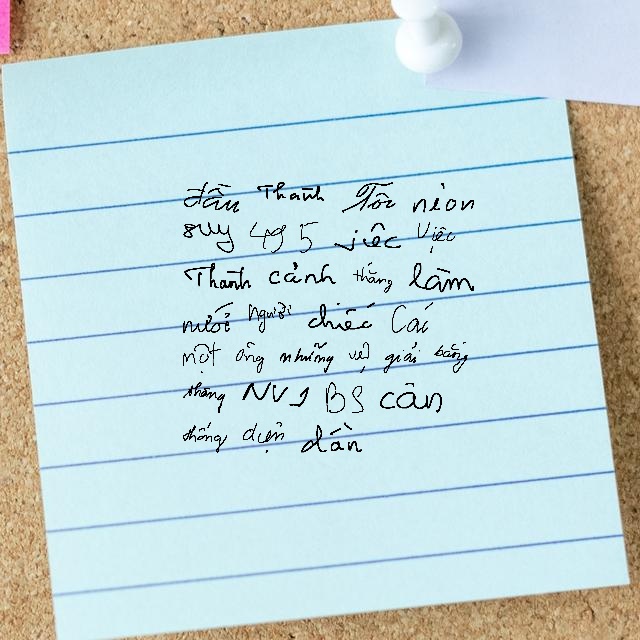 dẫu Thanh Tóc nion
suy 495 jiêc Việc
Thành cảnh thắng lãm
nuối người chiếc Các
một ông những vẽ giải bằng
tháng NV1 BS cân
thống diện dần